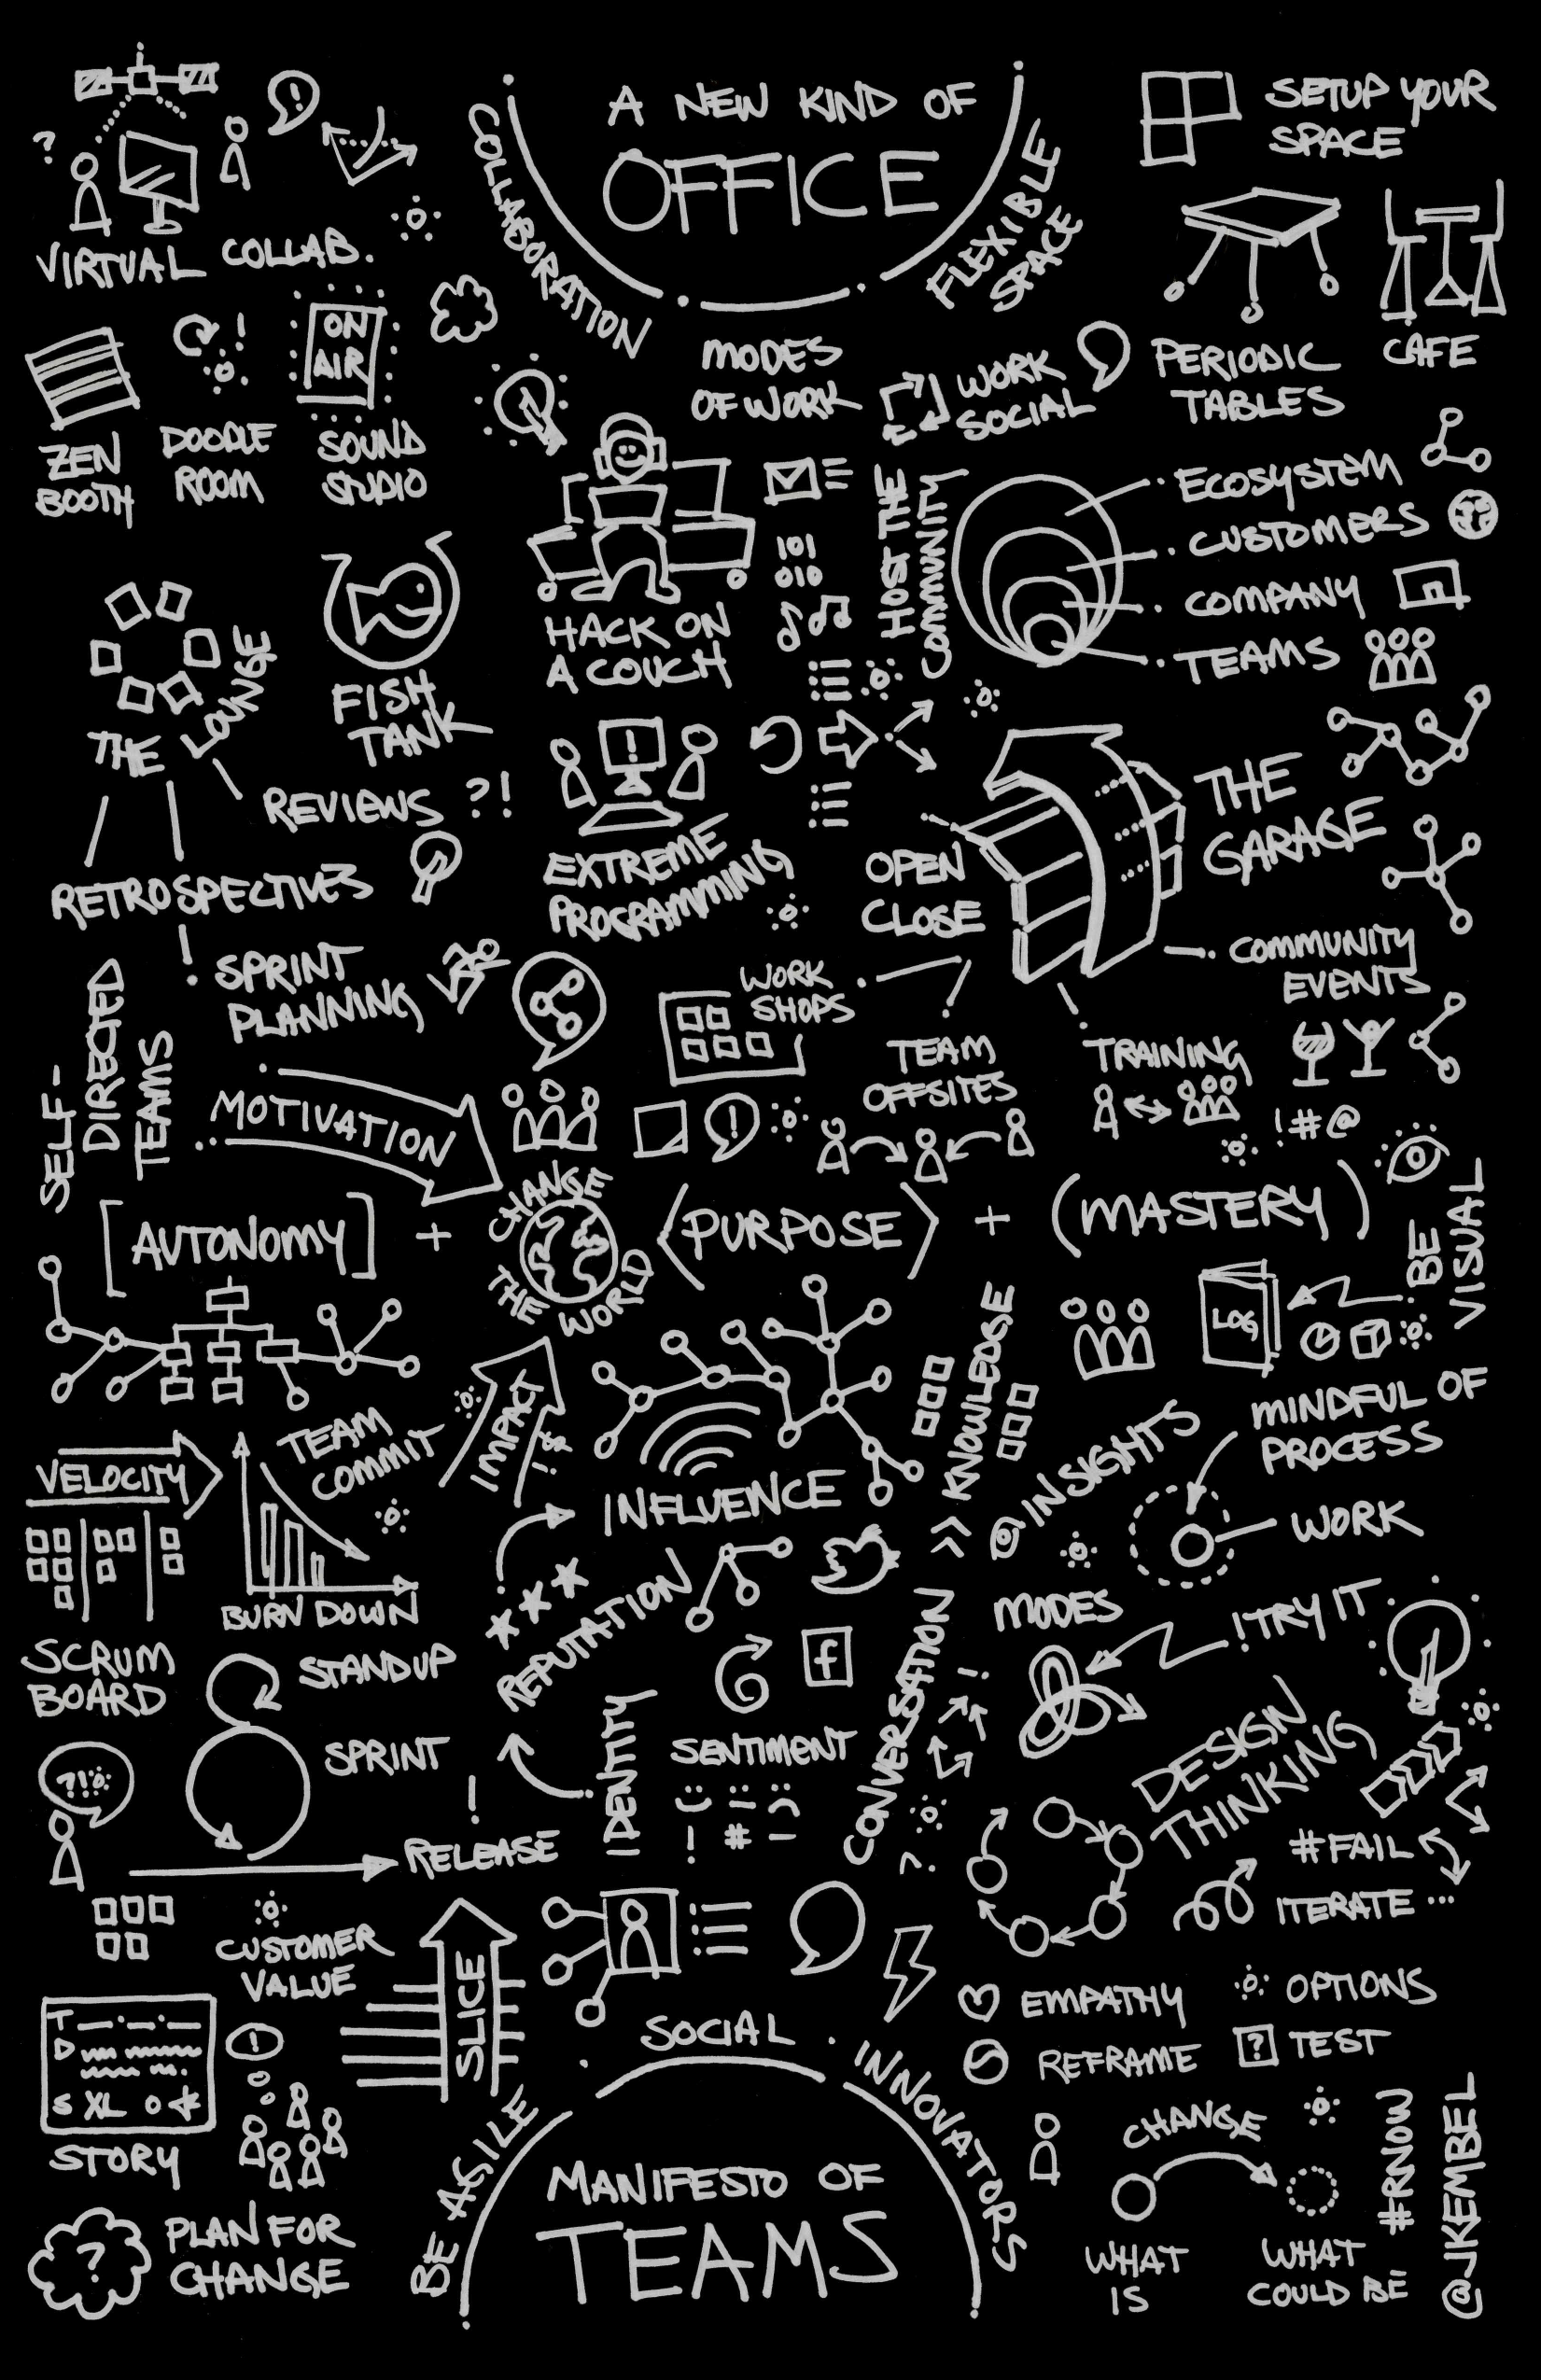 A NEW KIND OF
OFFICE
COLLABORATION
FLEXIBLE
SPACE
SETUP YOUR
SPACE
?
!
VIRTUAL COLLAB.
!
ON
AIR
ZEN
BOOTH
DOODLE
ROOM
SOUND
STUDIO
MODES
OF WORK
WORK
SOCIAL
PERIODIC
TABLES
CAFE
HACK ON
A COUCH
101
010
HOST THE
COMMUNITY
ECOSYSTEM
CUSTOMERS
COMPANY
TEAMS
THE
LOUNGE
FISH
TANK
REVIEWS ?!
RETROSPECTIVES
!
EXTREME
PROGRAMMING
OPEN
CLOSE
THE
GARAGE
SPRINT
PLANNING
SELF-
DIRECTED
TEAMS
WORK
SHOPS
TEAM
OFFSITES
TRAINING
COMMUNITY
EVENTS
!#@
MOTIVATION
!
[AUTONOMY]
+
CHANGE
THE WORLD
<PURPOSE>
+
(MASTERY)
BE
VISUAL
LOG
VELOCITY
TEAM
COMMIT
IMPACT
!$!
INFLUENCE
KNOWLEDGE
INSIGHTS
MINDFUL OF
PROCESS
WORK
BURN DOWN
SCRUM
BOARD
STANDUP
SPRINT
RELEASE
?!
!
REPUTATION
IDENTITY
f
SENTIMENT
! # -
CONVERSATION
!
?
MODES
!TRY IT
DESIGN
THINKING
#FAIL
ITERATE ...
CUSTOMER
VALUE
SLICE
T
D
S XL O *
STORY
!
?
PLAN FOR
CHANGE
EMPATHY
OPTIONS
REFRAME
? TEST
BE AGILE
SOCIAL
INNOVATORS
MANIFESTO OF
TEAMS
CHANGE
WHAT
IS
WHAT
COULD BE
#RNOW
@JKEMBEL